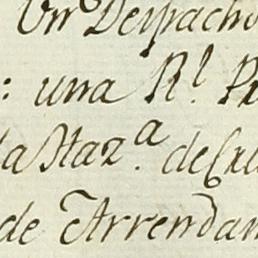 Un Despacho
: una Rl. Pr
la Haza. de Cru
de Arrendam